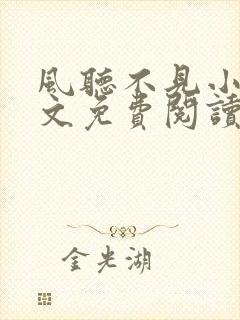 風聽不見小
文免費閱讀
金光湖